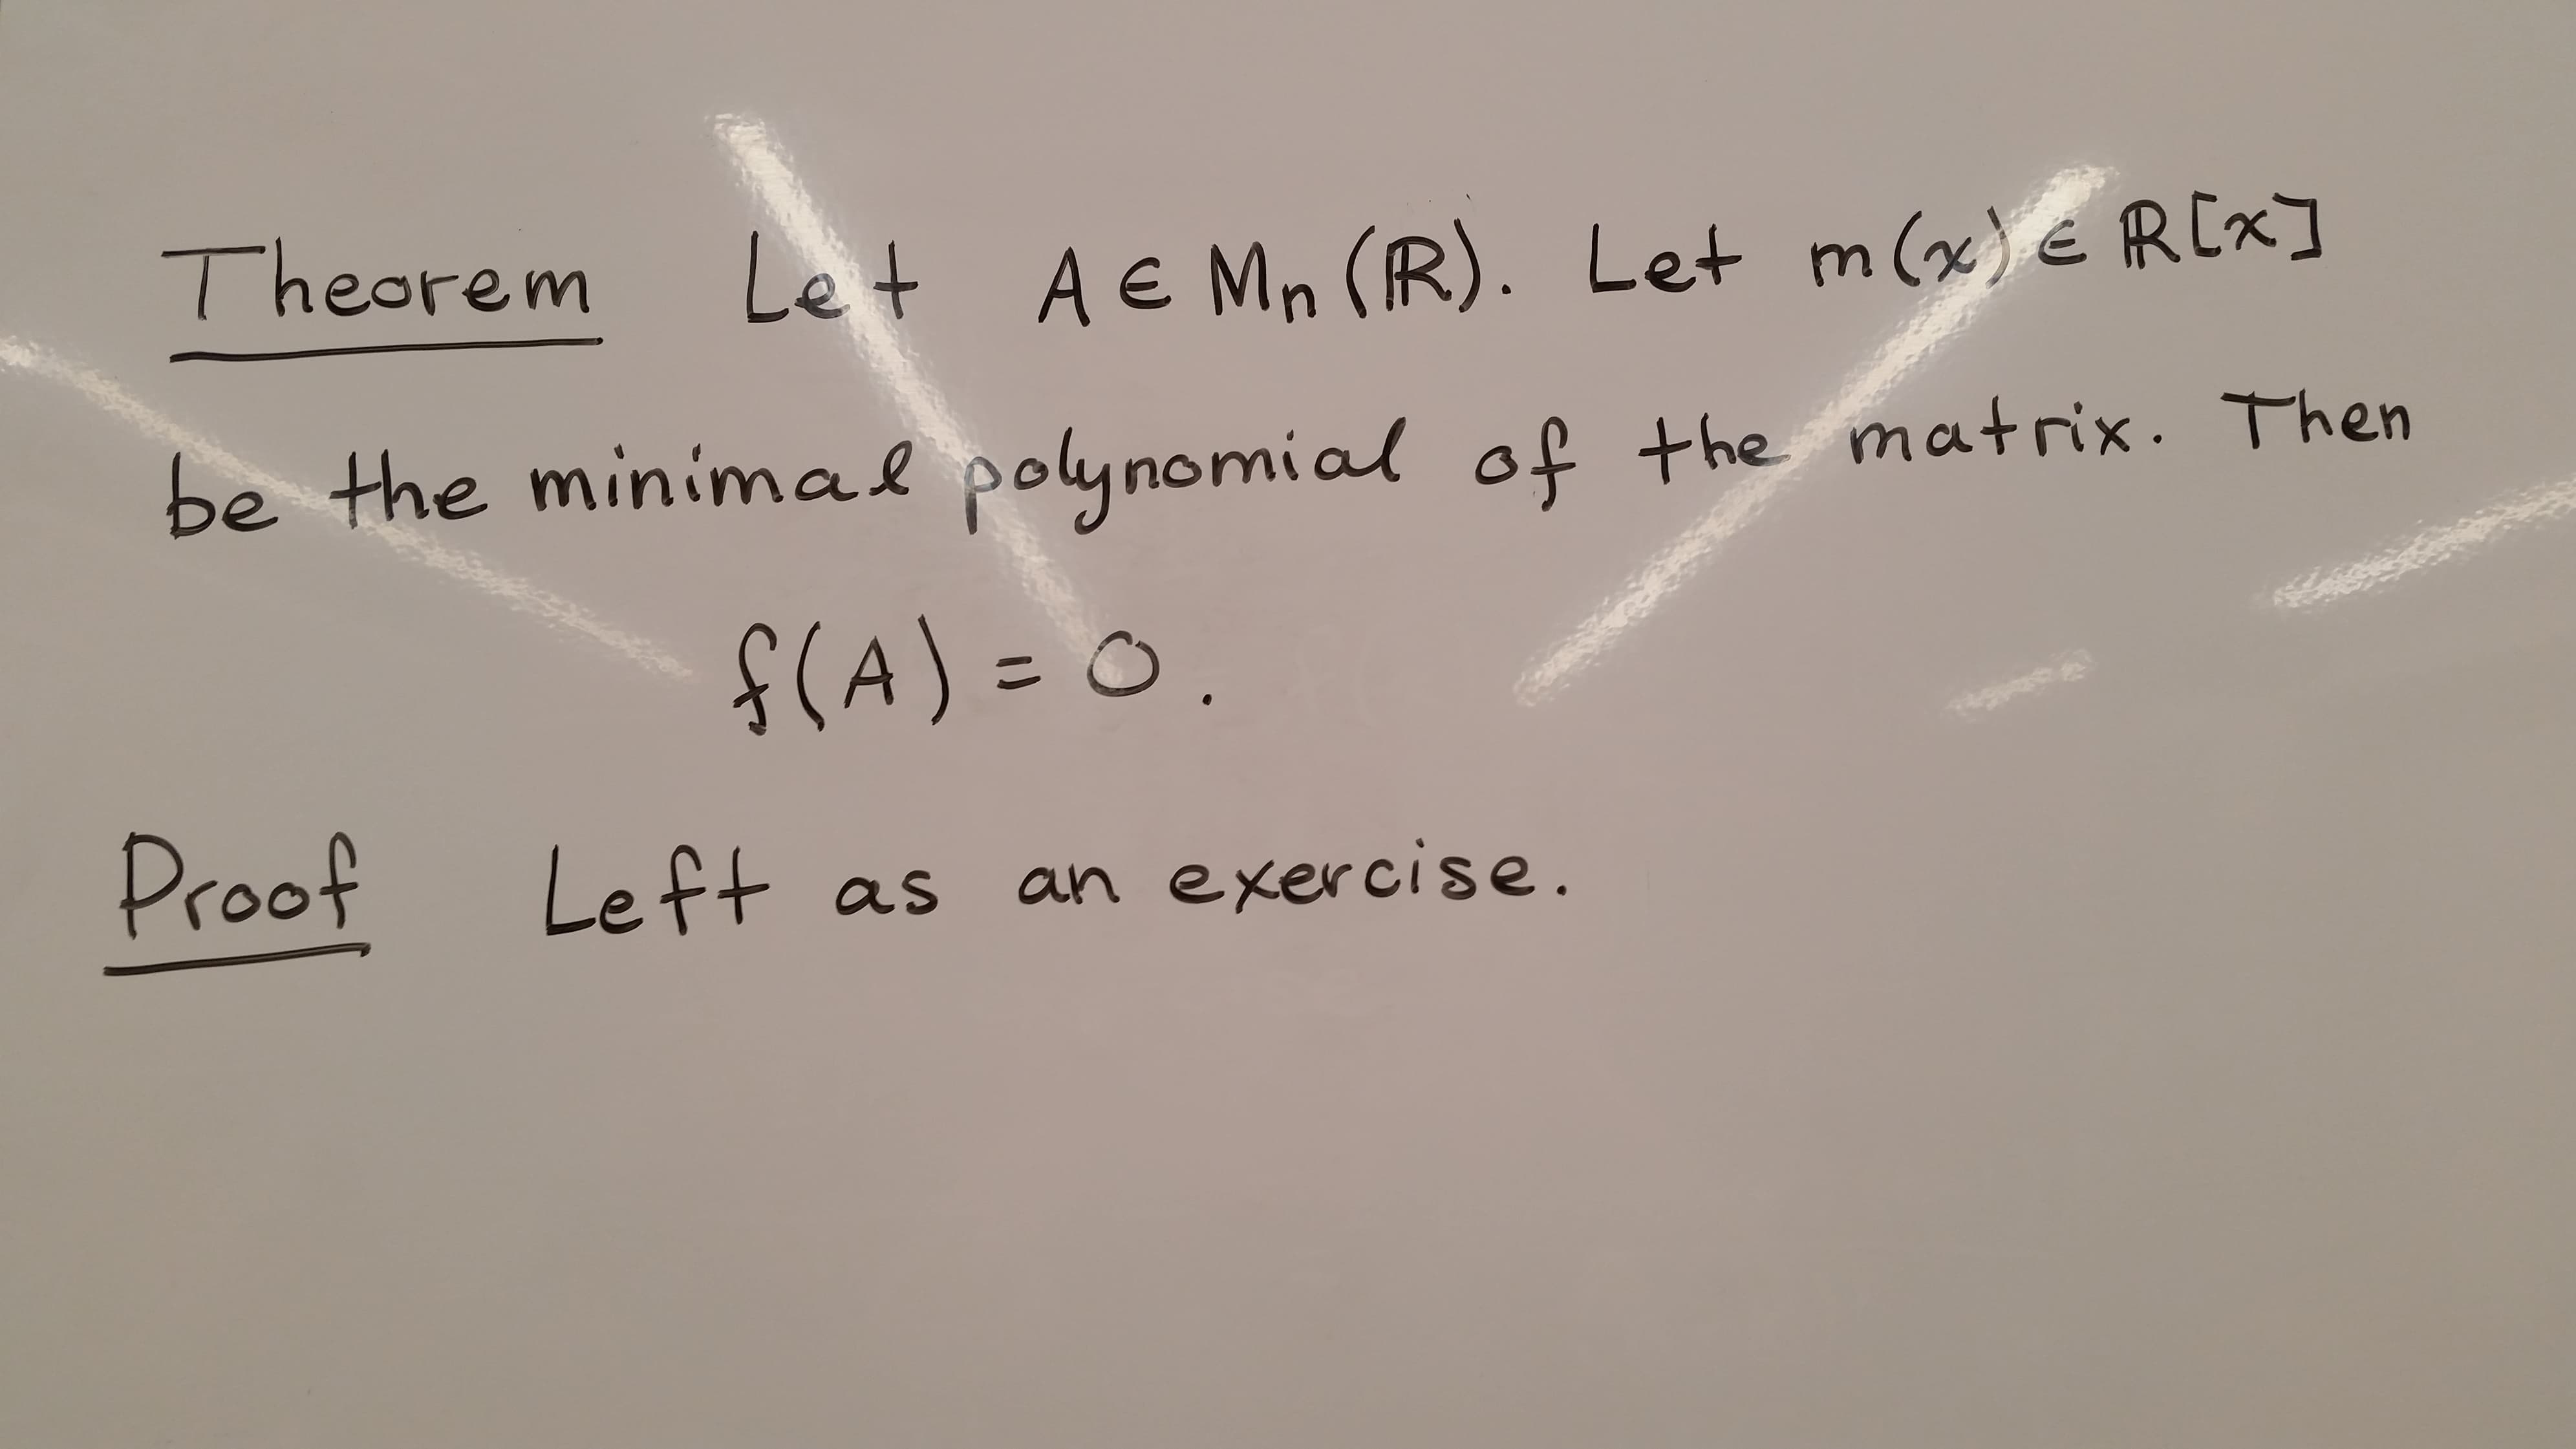 Theorem Let A ∈ Mn (ℝ). Let m(x) ∈ ℝ[x]
be the minimal polynomial of the matrix. Then
f(A) = 0.
Proof Left as an exercise.